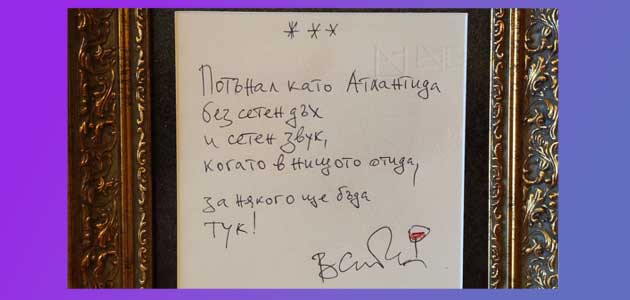 ***
Потънал като Атлантида
без сетен дъх
и сетен звук,
когато в нищото отида,
за някого ще бъда
тук!